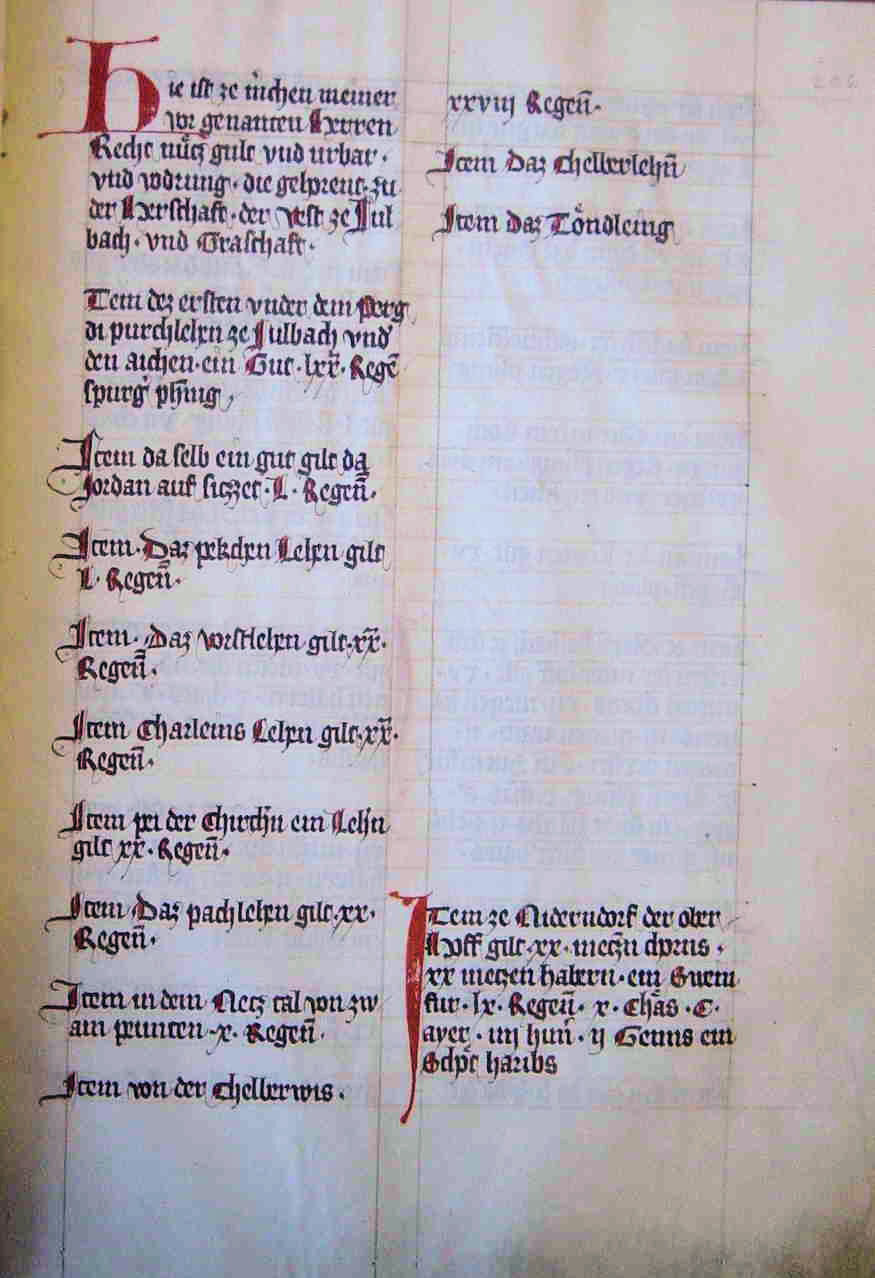 Hie ist ze michen meiner
vor genanten Herren
Recht nucz gult vnd urbar ·
vnd vodrung · die gehorent zu
der Herschaft · der vest ze Jul
bach · vnd Grafschaft ·
Item dez ersten vnder dem perg
di purchlehen ze Julbach vnd
den aichen · ein Gut · lxx · Regen
spurger phenig
Item da selb ein gut gilt da
Jordan auf siczet · L · Regenn ·
Item · Daz pekchen Lehen gilt
L · Regenn ·
Item · Daz vorstlehen gilt · xx ·
Regenn ·
Item Charleins Lehen gilt · xx ·
Regenn ·
Item pei der Chirchen ein Lehen
gilt xx · Regenn ·
Item Daz pachlehen gilt · xx ·
Regenn ·
Item in dem Netz tal von zw
ain peunten · x · Regenn ·
Item von der Chellerwis ·
xxviij Regenn ·
Item Daz Chellerlehen
Item Daz Töndleing
Item ze Niderndorf der ober
Hoff gilt · xx · meczen
xx meczen habern · ein Swein
fur · lx · Regenn · x · Chas · C ·
ayer · iiij hun · ij Genns ein
Schot haribs